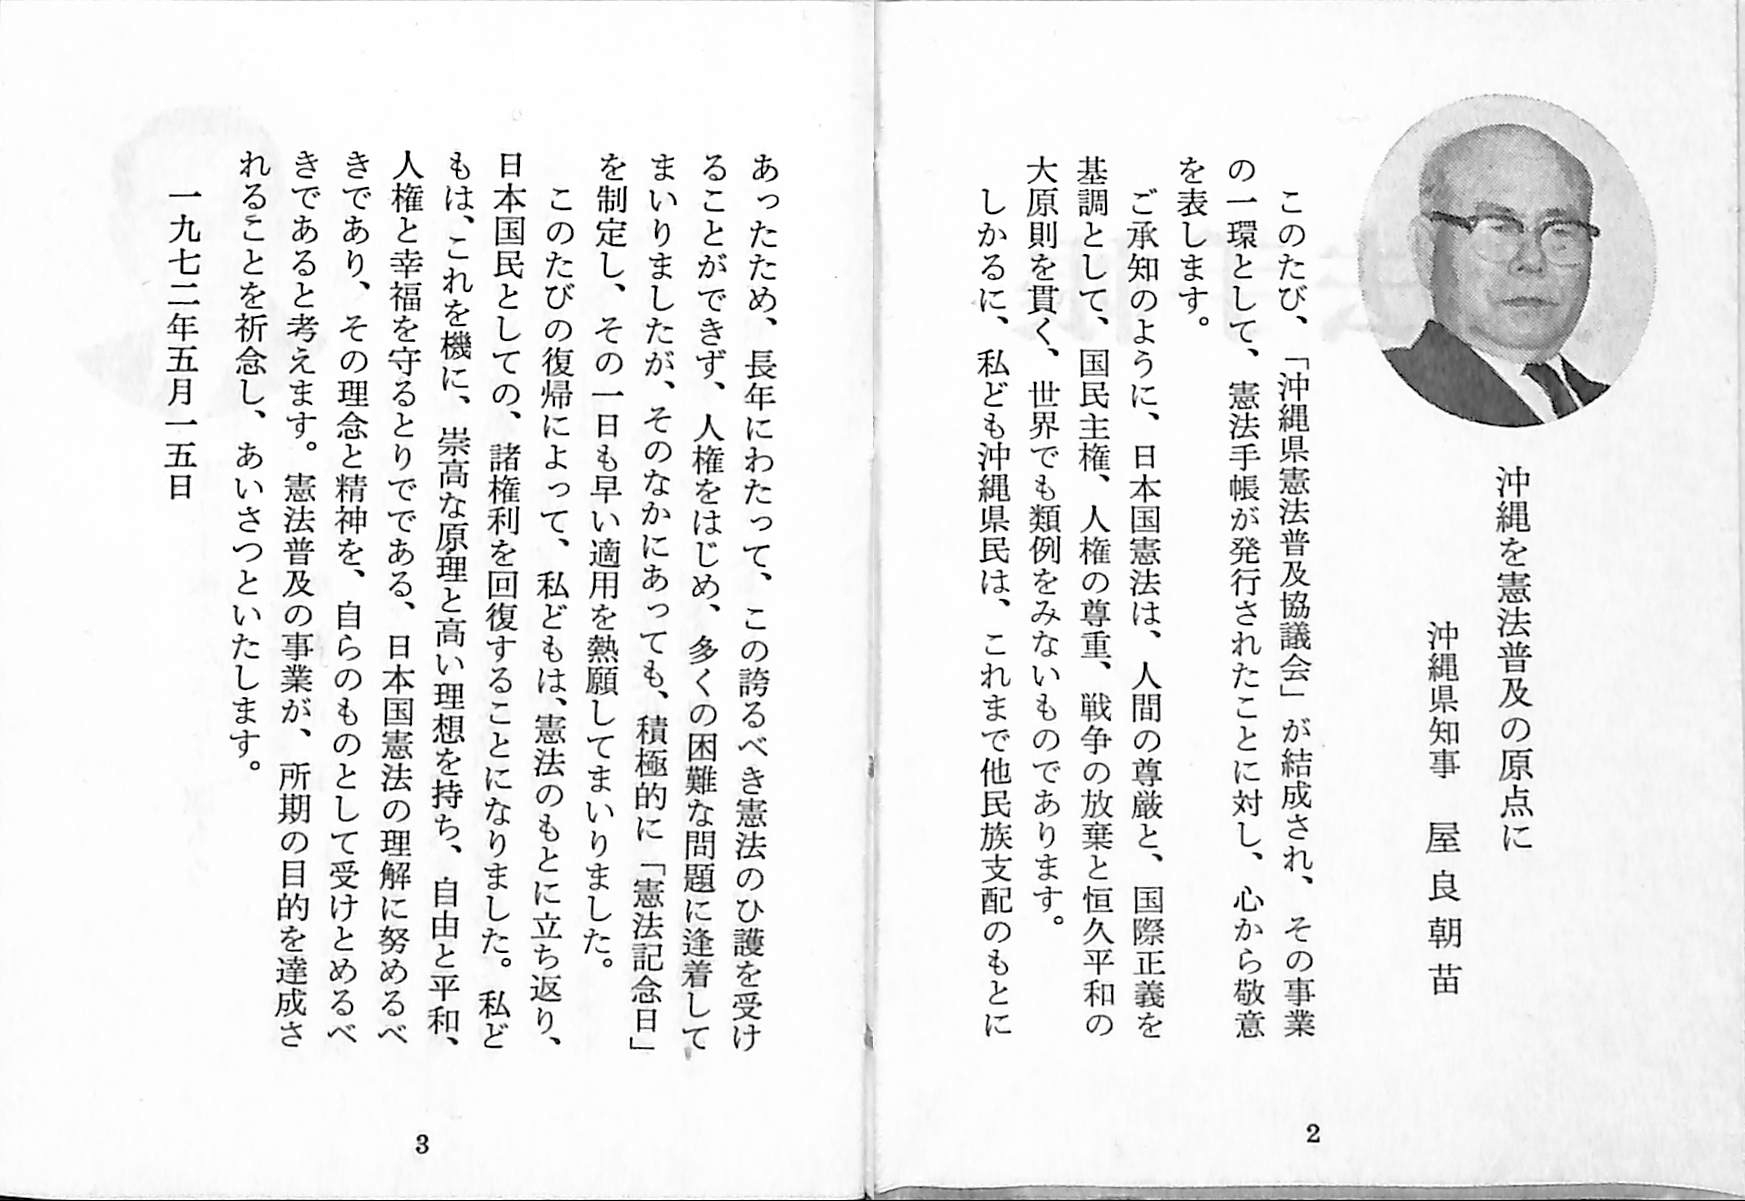 沖縄を憲法普及の原点に
沖縄県知事　屋良朝苗
このたび、「沖縄県憲法普及協議会」が結成され、その事業
の一環として、憲法手帳が発行されたことに対し、心から敬意
を表します。
ご承知のように、日本国憲法は、人間の尊厳と、国際正義を
基調として、国民主権、人権の尊重、戦争の放棄と恒久平和の
大原則を貫く、世界でも類例をみないものであります。
しかるに、私ども沖縄県民は、これまで他民族支配のもとに
2
あったため、長年にわたって、この誇るべき憲法のひ護を受け
ることができず、人権をはじめ、多くの困難な問題に逢着して
まいりましたが、そのなかにあっても、積極的に「憲法記念日」
を制定し、その一日も早い適用を熱願してまいりました。
このたびの復帰によって、私どもは、憲法のもとに立ち返り、
日本国民としての、諸権利を回復することになりました。私ど
もは、これを機に、崇高な原理と高い理想を持ち、自由と平和、
人権と幸福を守るとりでである、日本国憲法の理解に努めるべ
きであり、その理念と精神を、自らのものとして受けとめるべ
きであると考えます。憲法普及の事業が、所期の目的を達成さ
れることを祈念し、あいさつといたします。
一九七二年五月一五日
3